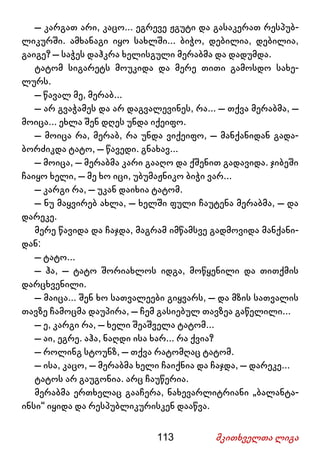 — კარგათ არი, კაცო... ეგრევე ჟგუტი და გასაკერათ რესპუბ-
ლიკურში. ამხანაგი იყო სახლში... ბიჭო, დებილია, დებილია,
გაიგე? — საჭეს დაჰკრა ხელისგული მერაბმა და დადუმდა.
ტატომ სიგარეტს მოუკიდა და მერე თითი გამოსდო სახე-
ლურს.
— წავალ მე, მერაბ...
— არ გვაჭამეს და არ დაგვალევინეს, რა... — თქვა მერაბმა, —
მოიცა... ეხლა შენ დღეს უნდა იქეიფო.
— მოიცა რა, მერაბ, რა უნდა ვიქეიფო, — მანქანიდან გადა-
ბორძიკდა ტატო, — წავედი. გნახავ...
— მოიცა, — მერაბმა კარი გააღო და ქშენით გადავიდა. ჯიბეში
ჩაიყო ხელი, — მე ხო იცი, უბუმაჟნიკო ბიჭი ვარ...
— კარგი რა, — უკან დაიხია ტატომ.
— ნუ მაყვირებ ახლა, — ხელში ფული ჩაუტენა მერაბმა, — და
დარეკე.
მერე წავიდა და ჩაჯდა, მაგრამ იმწამსვე გადმოვიდა მანქანი-
დან:
— ტატო...
— ჰა, — ტატო შორიახლოს იდგა, მოწყენილი და თითქმის
დარცხვენილი.
— მაიცა... შენ ხო სათვალეები გიყვარს, — და მზის სათვალის
თავზე ჩამოცმა დაუპირა, — ჩემ გასიებულ თავზეა გაწელილი...
— ე, კარგი რა, — ხელი შეაშველა ტატომ...
— აი, ეგრე. აჰა, ნაღდი ისა ხარ... რა ქვია?
— როლინგ სტოუნზ, — თქვა რატომღაც ტატომ.
— ისა, კაცო, — მერაბმა ხელი ჩაიქნია და ჩაჯდა, — დარეკე...
ტატოს არ გაუგონია. არც ჩაუწერია.
მერაბმა ერთხელაც გააჩერა, ნახევარლიტრიანი „ბალანტა-
ინსი“ იყიდა და რესპუბლიკურისკენ დააწვა.
113
მკითხველთა ლიგა